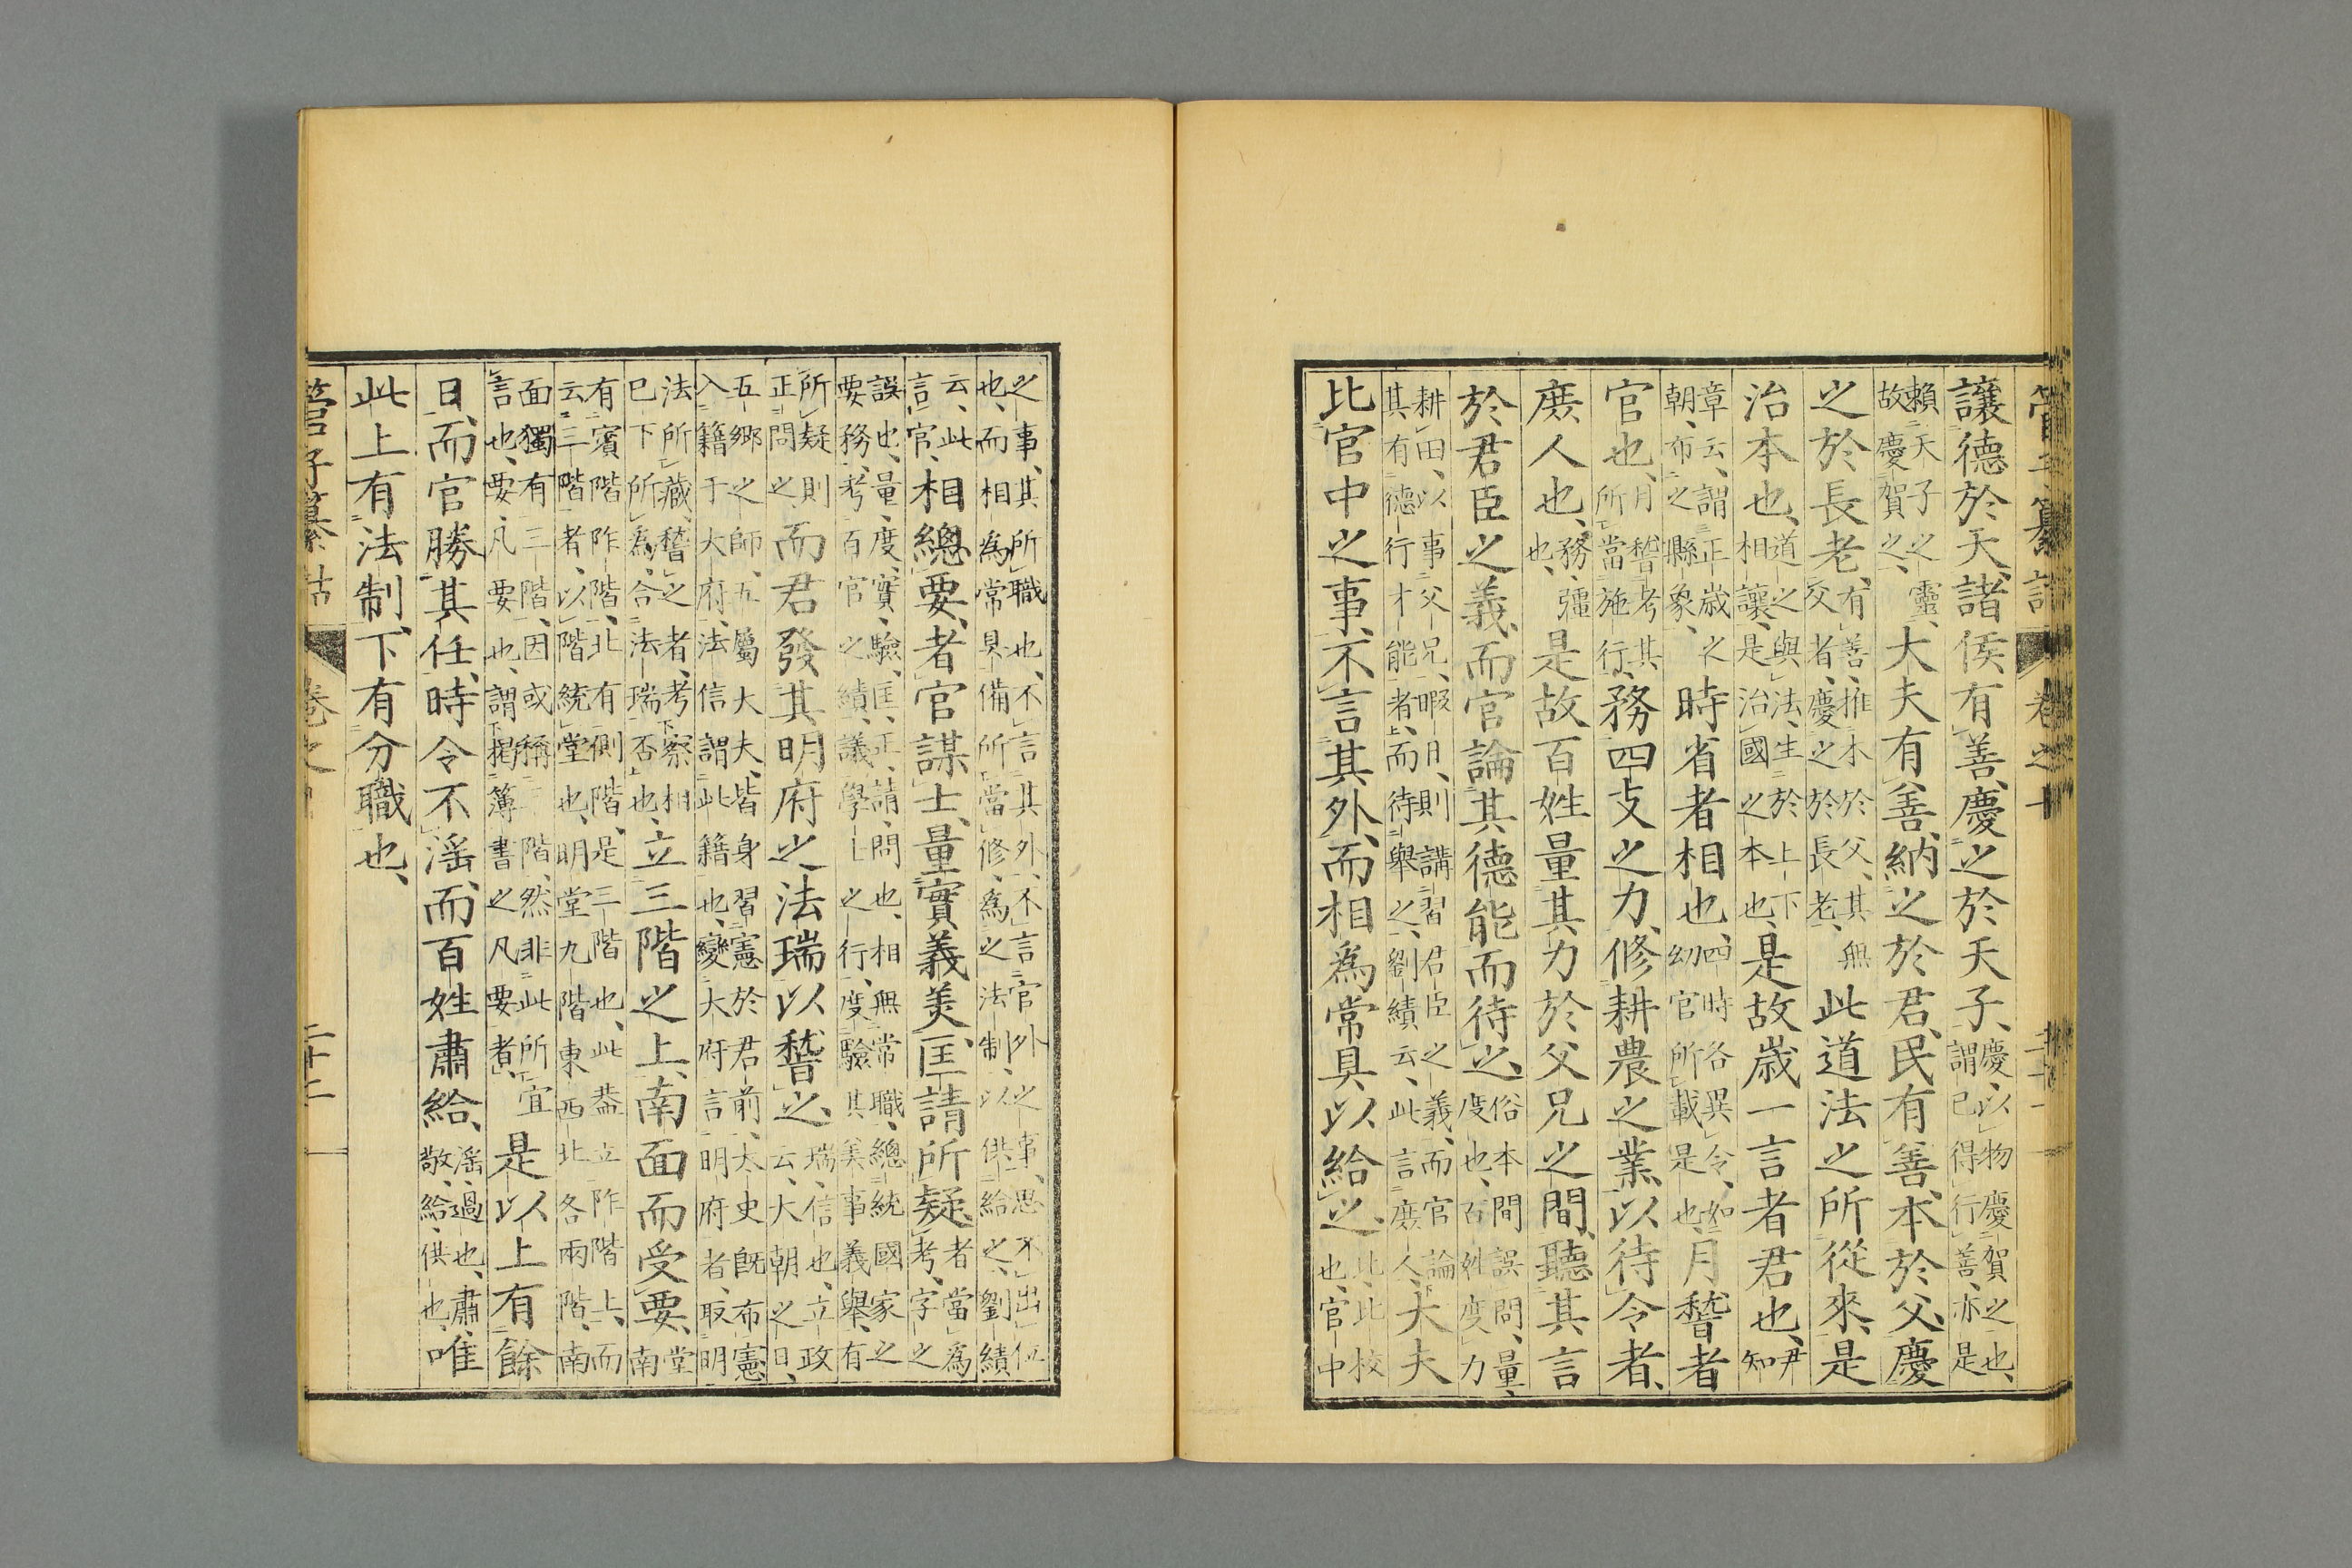 管子纂詁 卷之十 二十一
讓德於天、諸侯有善、慶之於天子、慶、以物慶賀之也、謂己得行善、亦是
賴天子之靈、故慶賀之、大夫有善、納之於君、民有善、本於父、慶
之於長老、有善、推本於父、其無父者、慶之於長老、此道法之所從來、是
治本也、道之與法、生於上下相讓、是治國之本也、是故歲一言者君也、尹知
章云、謂正歲之朝、布之縣象、時省者相也、四時各異令、如幼官所載是也、月稽者
官也、月稽考其所當施行、務四支之力、修耕農之業、以待令者、
庶人也、務、彊也、是故百姓量其力於父兄之間、聽其言
於君臣之義、而官論其德能而待之、俗本間誤問、量、度也、百姓度力
耕田、以事父兄、暇日、則講習君臣之義、而官論其有德行才能者、而待舉之、劉績云、此言庶人、大夫
比官中之事、不言其外、而相為常具以給之、比、比校也、官中
之事、其所職也、不言其外、不言官外之事、思不出位也、而相為常具備所當修、為之法制、以供給之、劉績
云、此言官、相總要、者官謀士、量實義美、匡請所疑、者當為考、字之
誤也、量、度、實、驗、匡、正、請、問也、相無常職、總統國家之要務、考百官之績、議學士之行、度驗其美事義舉、有
所疑則正問之、而君發其明府之法瑞以稽之、瑞、信也、立政云、大朝之日、
五鄉之師、五屬大夫、皆身習憲於君前、太史既布憲入籍于大府、法信謂此籍也、變大府言明府者、取明
法所藏、稽之者、考察相已下所為、合法瑞否也、立三階之上、南面而受要、堂南
有賓階阼階、北有側階、是三階也、此蓋立阼階上、而云三階者、以階統堂也、明堂九階、東西北各兩階、南
面獨有三階、因或稱三階、然非此所宜言也、要、凡要也、謂揭簿書之凡要者、是以上有餘
日、而官勝其任、時令不淫、而百姓肅給、淫、過也、肅、敬、給、供也、唯
此上有法制、下有分職也、
管子纂詁 卷之 二十二